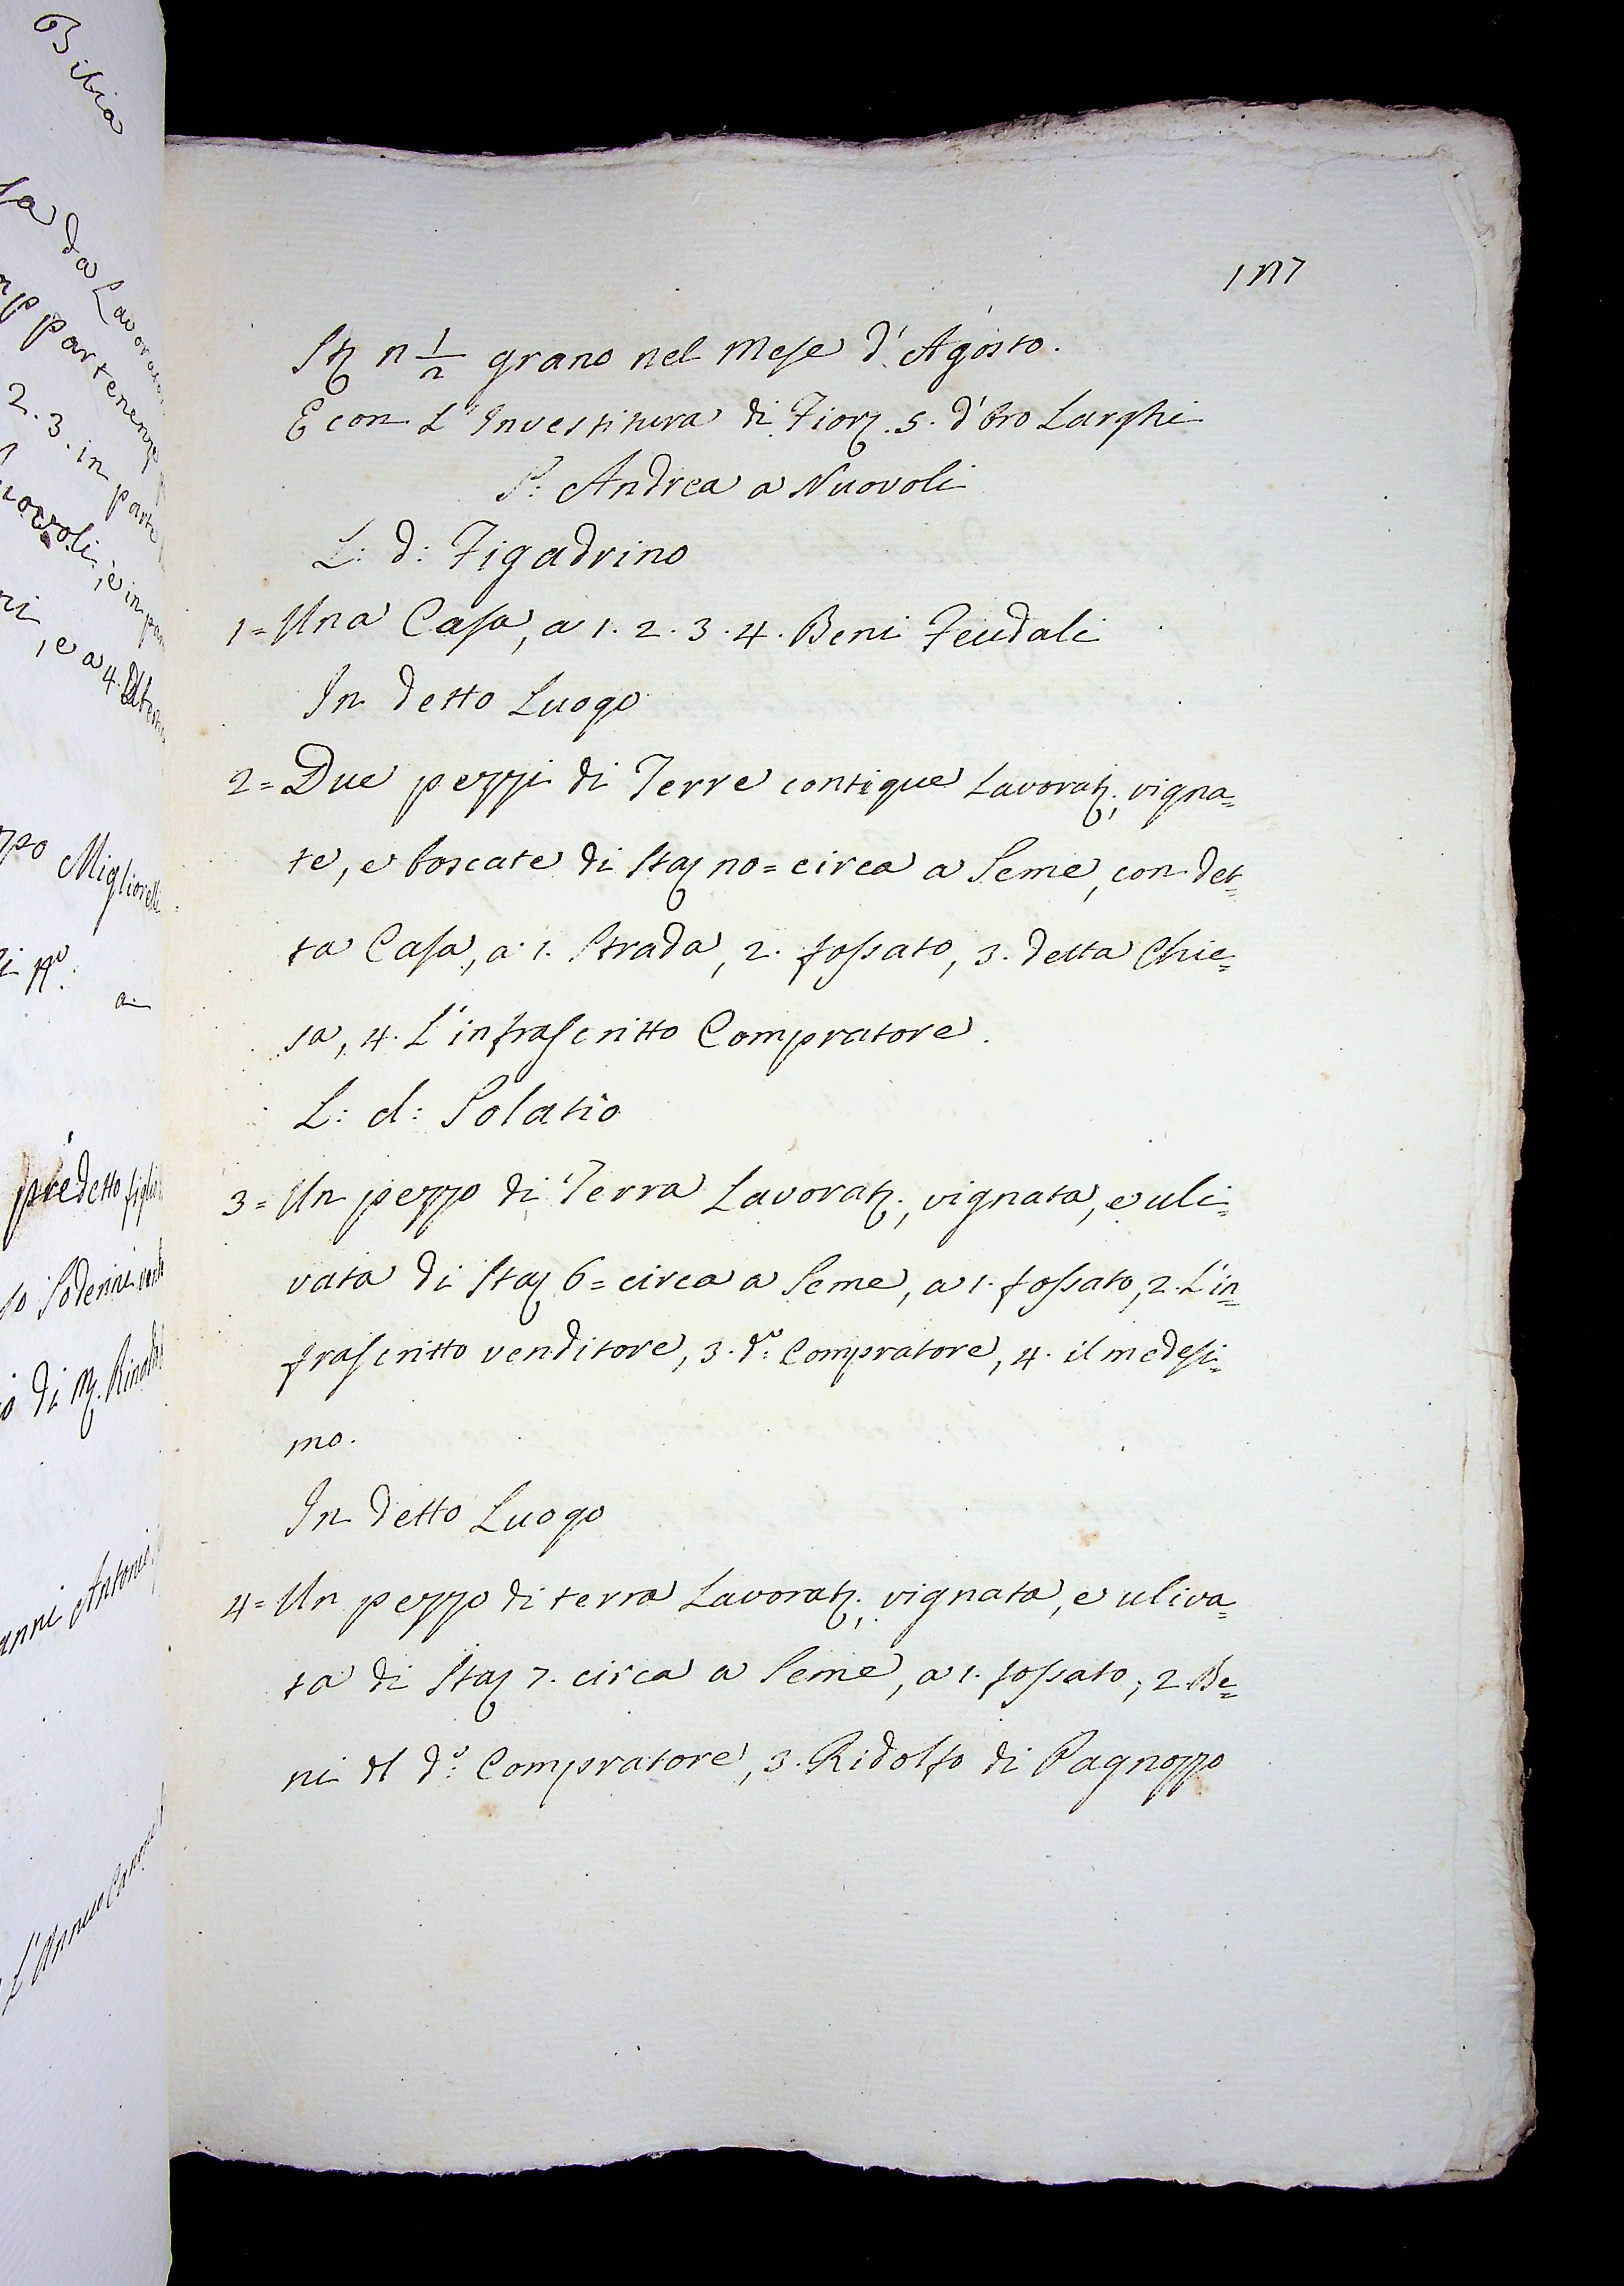 Bibia
sa da Lavorato
partenenze
2. 3. in parte
uovoli, e in par
ni, e a 4.
ppo Migliorelli
predetto figlio
so Soderini
o di M. Rinaldo
anni Antonio
L'Annuo Canone
177
Sta n 1/2 grano nel Mese d'Agosto.
E con L'Investitura di Fior. 5. d'Oro Larghi
S: Andrea a Nuovoli
L: d: Figadrino
1= Una Casa, a 1. 2. 3. 4. Beni Feudali
In detto Luogo
2= Due pezzi di Terre contigue Lavorat; vigna=
te, e boscate di Sta no= circa a Seme, con det=
ta Casa, a 1. Strada, 2. fossato, 3. detta Chie=
sa, 4. L'infrascritto Compratore.
L: d: Solatio
3= Un pezzo di Terra Lavorat; vignata, e uli=
vata di Sta 6= circa a Seme, a 1. fossato, 2. L'in=
frascritto venditore, 3. do: Compratore, 4. il medesi=
mo.
In detto Luogo
4= Un pezzo di terra Lavorat; vignata, e uliva=
ta di Sta 7. circa a Seme, a 1. fossato; 2 Be=
ni del do: Compratore, 3. Ridolfo di Pagnozzo